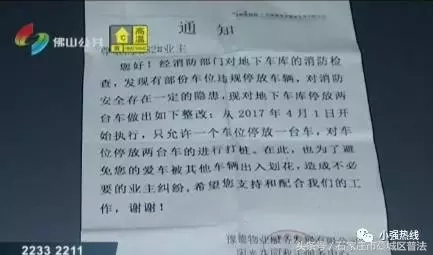 通知
佛山公共
高温
黄
2#业主
您好！经消防部门对地下车库的消防检
查，发现有部份车位违规停放车辆，对消防
安全存在一定的隐患，现对地下车库停放两
台车做出如下整改：从2017年4月1日开
始执行，只允许一个车位停放一台车，对车
位停放两台车的进行打桩。在此，也为了避
免您的爱车被其他车辆出入划花，造成不必
要的业主纠纷，希望您支持和配合我们的工
作，谢谢！
小强热线
头条号／石家庄市
城区普法
2233 2211